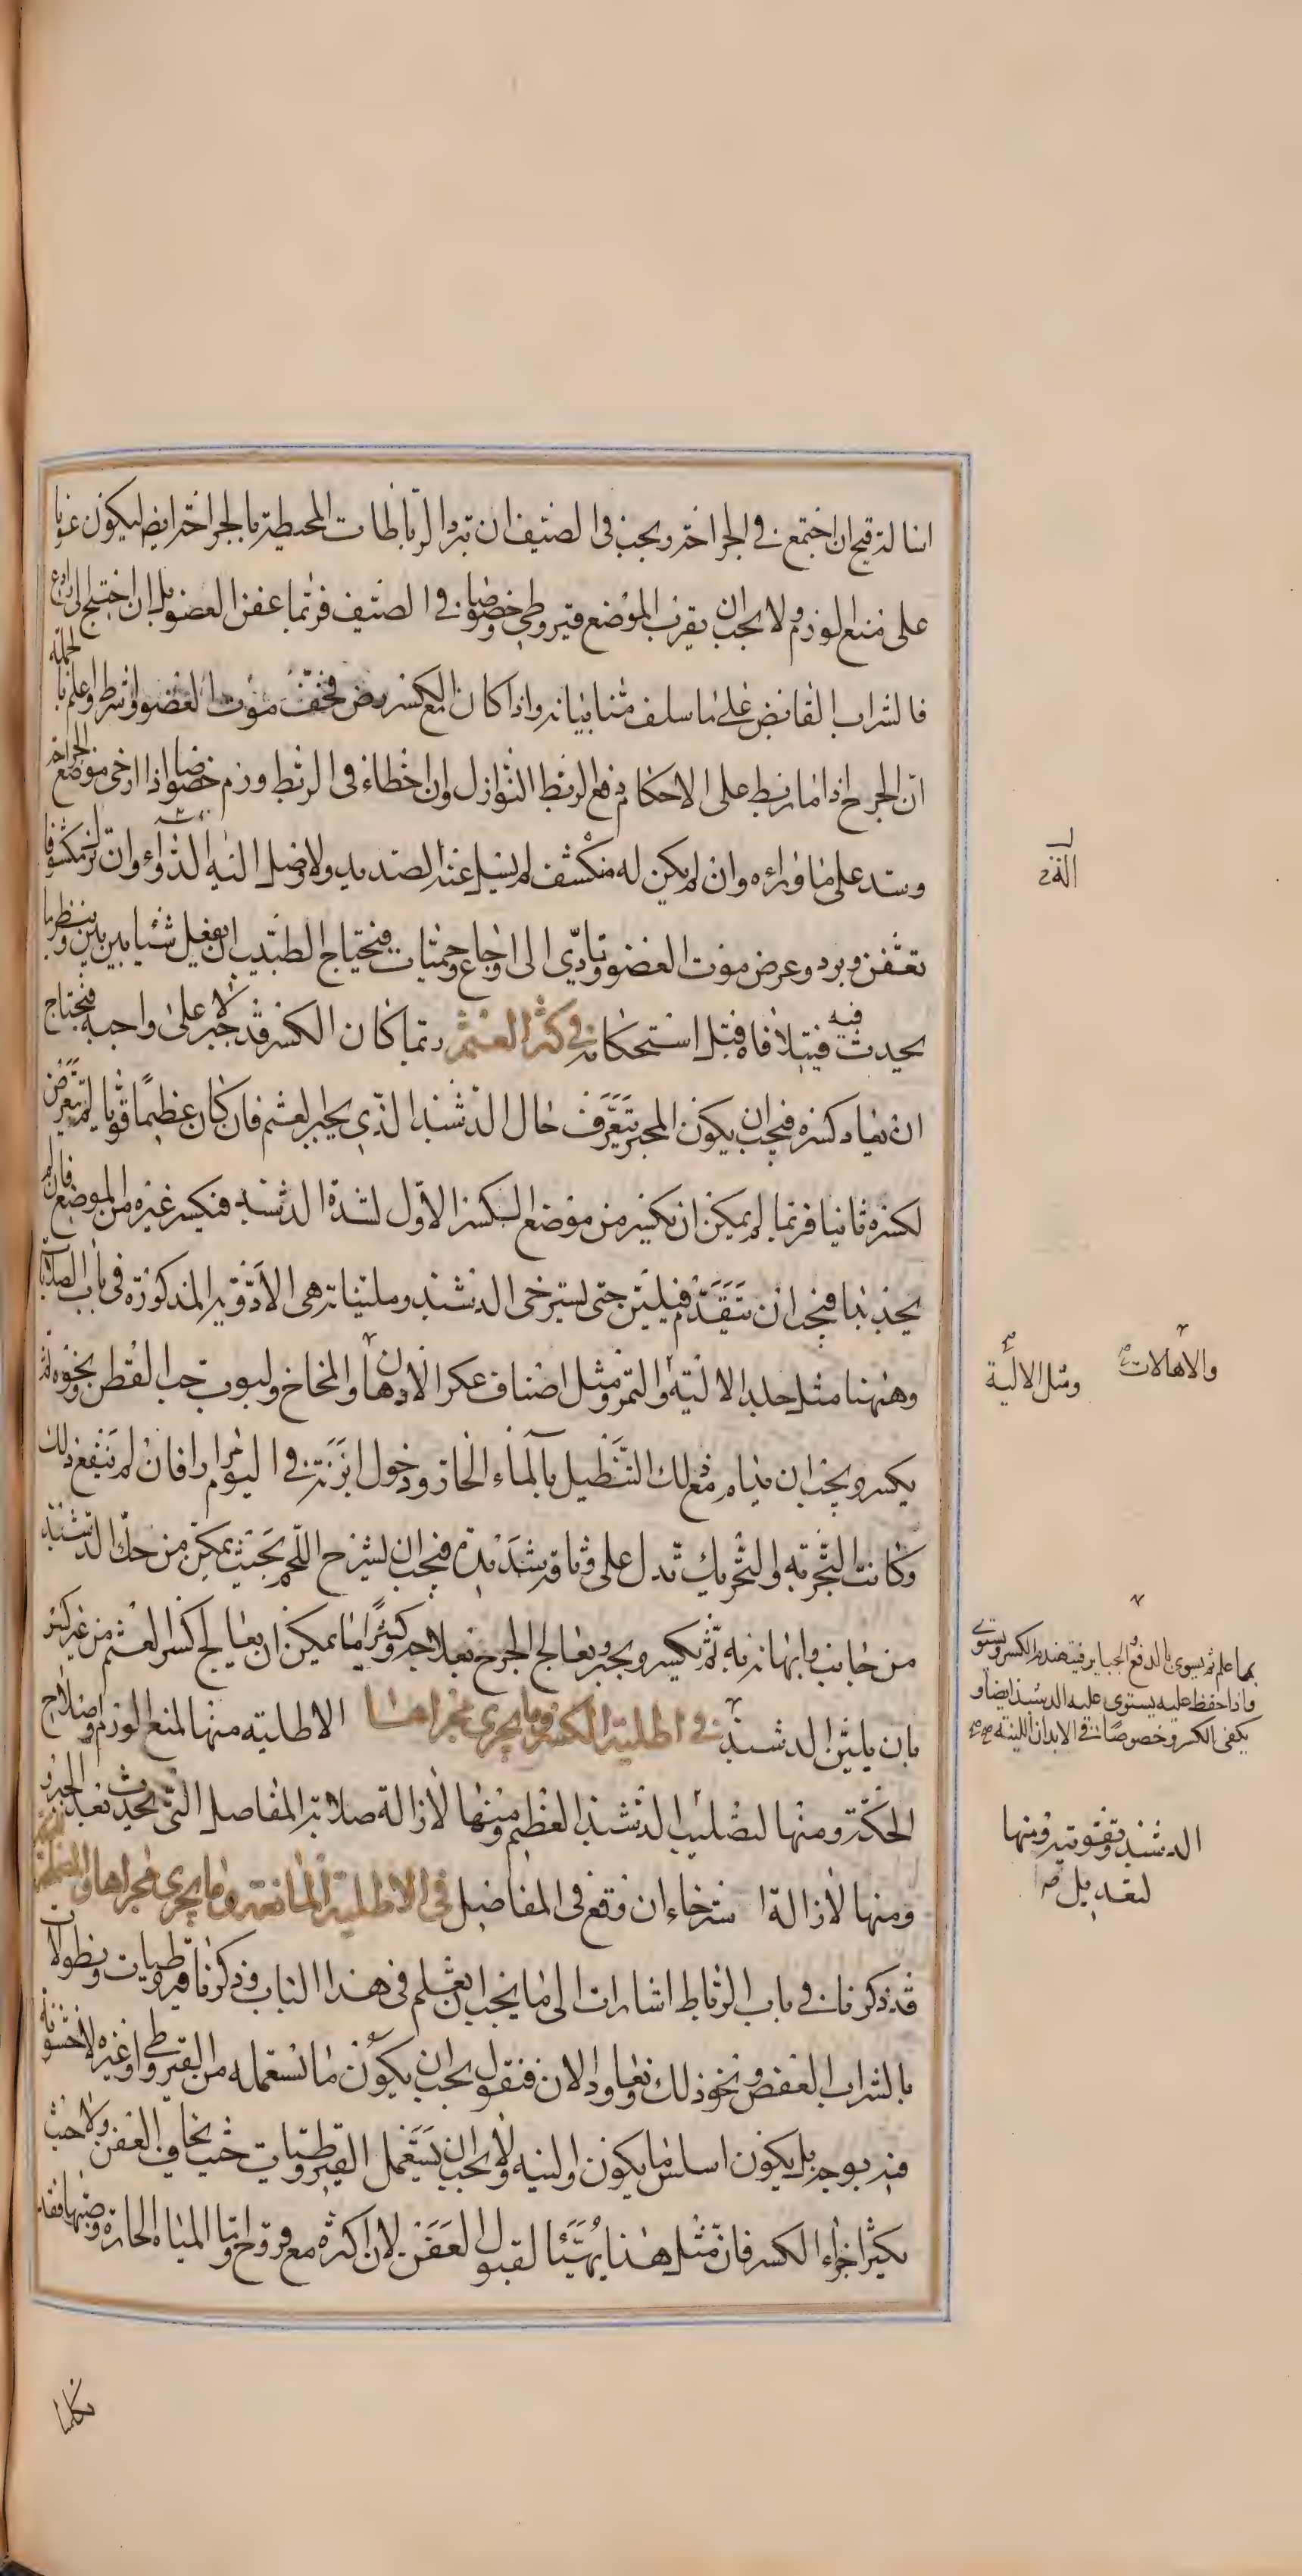 اسالة قيح ان اجتمع في الجراحة ويجب في الصيف ان تبرد الرباطات المحيطة بالجراحة ايضا ليكون عونا
على منع الورم ولا يجب ان يقرب الموضع قيروطي وخصوصا في الصيف فربما عفن العضو بل ان احتيج الى رادع
فالشراب القابض على ما سلف منا بيانه واذا كان مع الكسر رض فخفت موت العضو فاشرط واعلم بالجملة
ان الجرح اذا ما ربط على الاحكام دفع الربط النوازل وان اخطاء في الربط ورم خصوصا اذا ارخى موضع الجراحة
وشد على ما وراءه وان لم يكن له منكشف لم يسل عنه الصديد ولا وصل اليه الدواء وان ترك مكشوفا
تعفن وبرد وعرض موت العضو وتادى الى اوجاع وحميات فيحتاج الطبيب ان يفعل شيئا بين بين وينظر ما
يحدث فيه فيتلافاه قبل استحكامه في كسر العثم ربما كان الكسر قد جبر لا على واجبه فيحتاج
ان يعاد كسره فيجب ان يكون المجبر يتعرف حال الدشبذ الذي يجبر العثم فان كان عظيما قويا لم يتعرض
لكسره ثانيا فربما لم يمكن ان يكسر من موضع الكسر الاول لشدة الدشبذ فيكسر غيره من المواضع فان لم
يجد بدا فيجب ان يتقدم فيلين حتى يسترخي الدشبذ وملينياته هي الادوية المذكورة في باب الصلابات
وههنا مثل جلد الالية والتمر ومثل اصناف عكر الادهان والمخاخ ولبوب حب القطن ونحوه ثم
يكسر ويجب ان يدام مع ذلك التنطيل بالماء الحار ودخول ابزنة في اليوم مرارا فان لم ينفع ذلك
وكانت التجربة والتحريك تدل على وثاقة شديدة فيجب ان يشرح اللحم بحيث يمكن من حك الدشبذ
من جانب وايهانه به ثم يكسر ويجبر ويعالج الجرح بعلاجه وكثيرا ما يمكن ان يعالج كسر العثم من غير كسر
بان يلين الدشبذ في اطلية الكسر وما يجري مجراها الاطلية منها لمنع الورم واصلاح
الحكة ومنها لتصليب الدشبذ العظيم ومنها لازالة صلابة المفاصل التي تحدث بعد الجبر و
ومنها لازالة استرخاء ان وقع في المفاصل في الاطلية المانعة وما يجري مجراها والمصلحة
قد ذكرنا في باب الرباط اشارات الى ما يجب ان يعلم في هذا الباب وذكرنا قيروطيات ونطولات
بالشراب العفص ونحو ذلك ونعاود الان فنقول يجب ان يكون ما نستعمله من القيروطي او غيره لا خشونة
فيه بوجه بل يكون اسلس ما يكون والينه ولا يجب ان يستعمل القيروطيات حيث يخاف العفن ولا حيث
يكثر اجزاء الكسر فان مثل هذا يهيئا لقبول العفن لان اكثره مع قروح واما المياه الحارة وصبها فقد
تكلمنا
الذي
والاهالات
ومثل الالية
بما علم ثم يسوى بالدفع والجباير فيتهندم الكسر ويستوى
واذا حفظ عليه يستوى عليه الدشبذ ايضا و
يكفى الكسر وخصوصا في الابدان اللينة
الدشبذ وتقويته ومنها
لتعديل